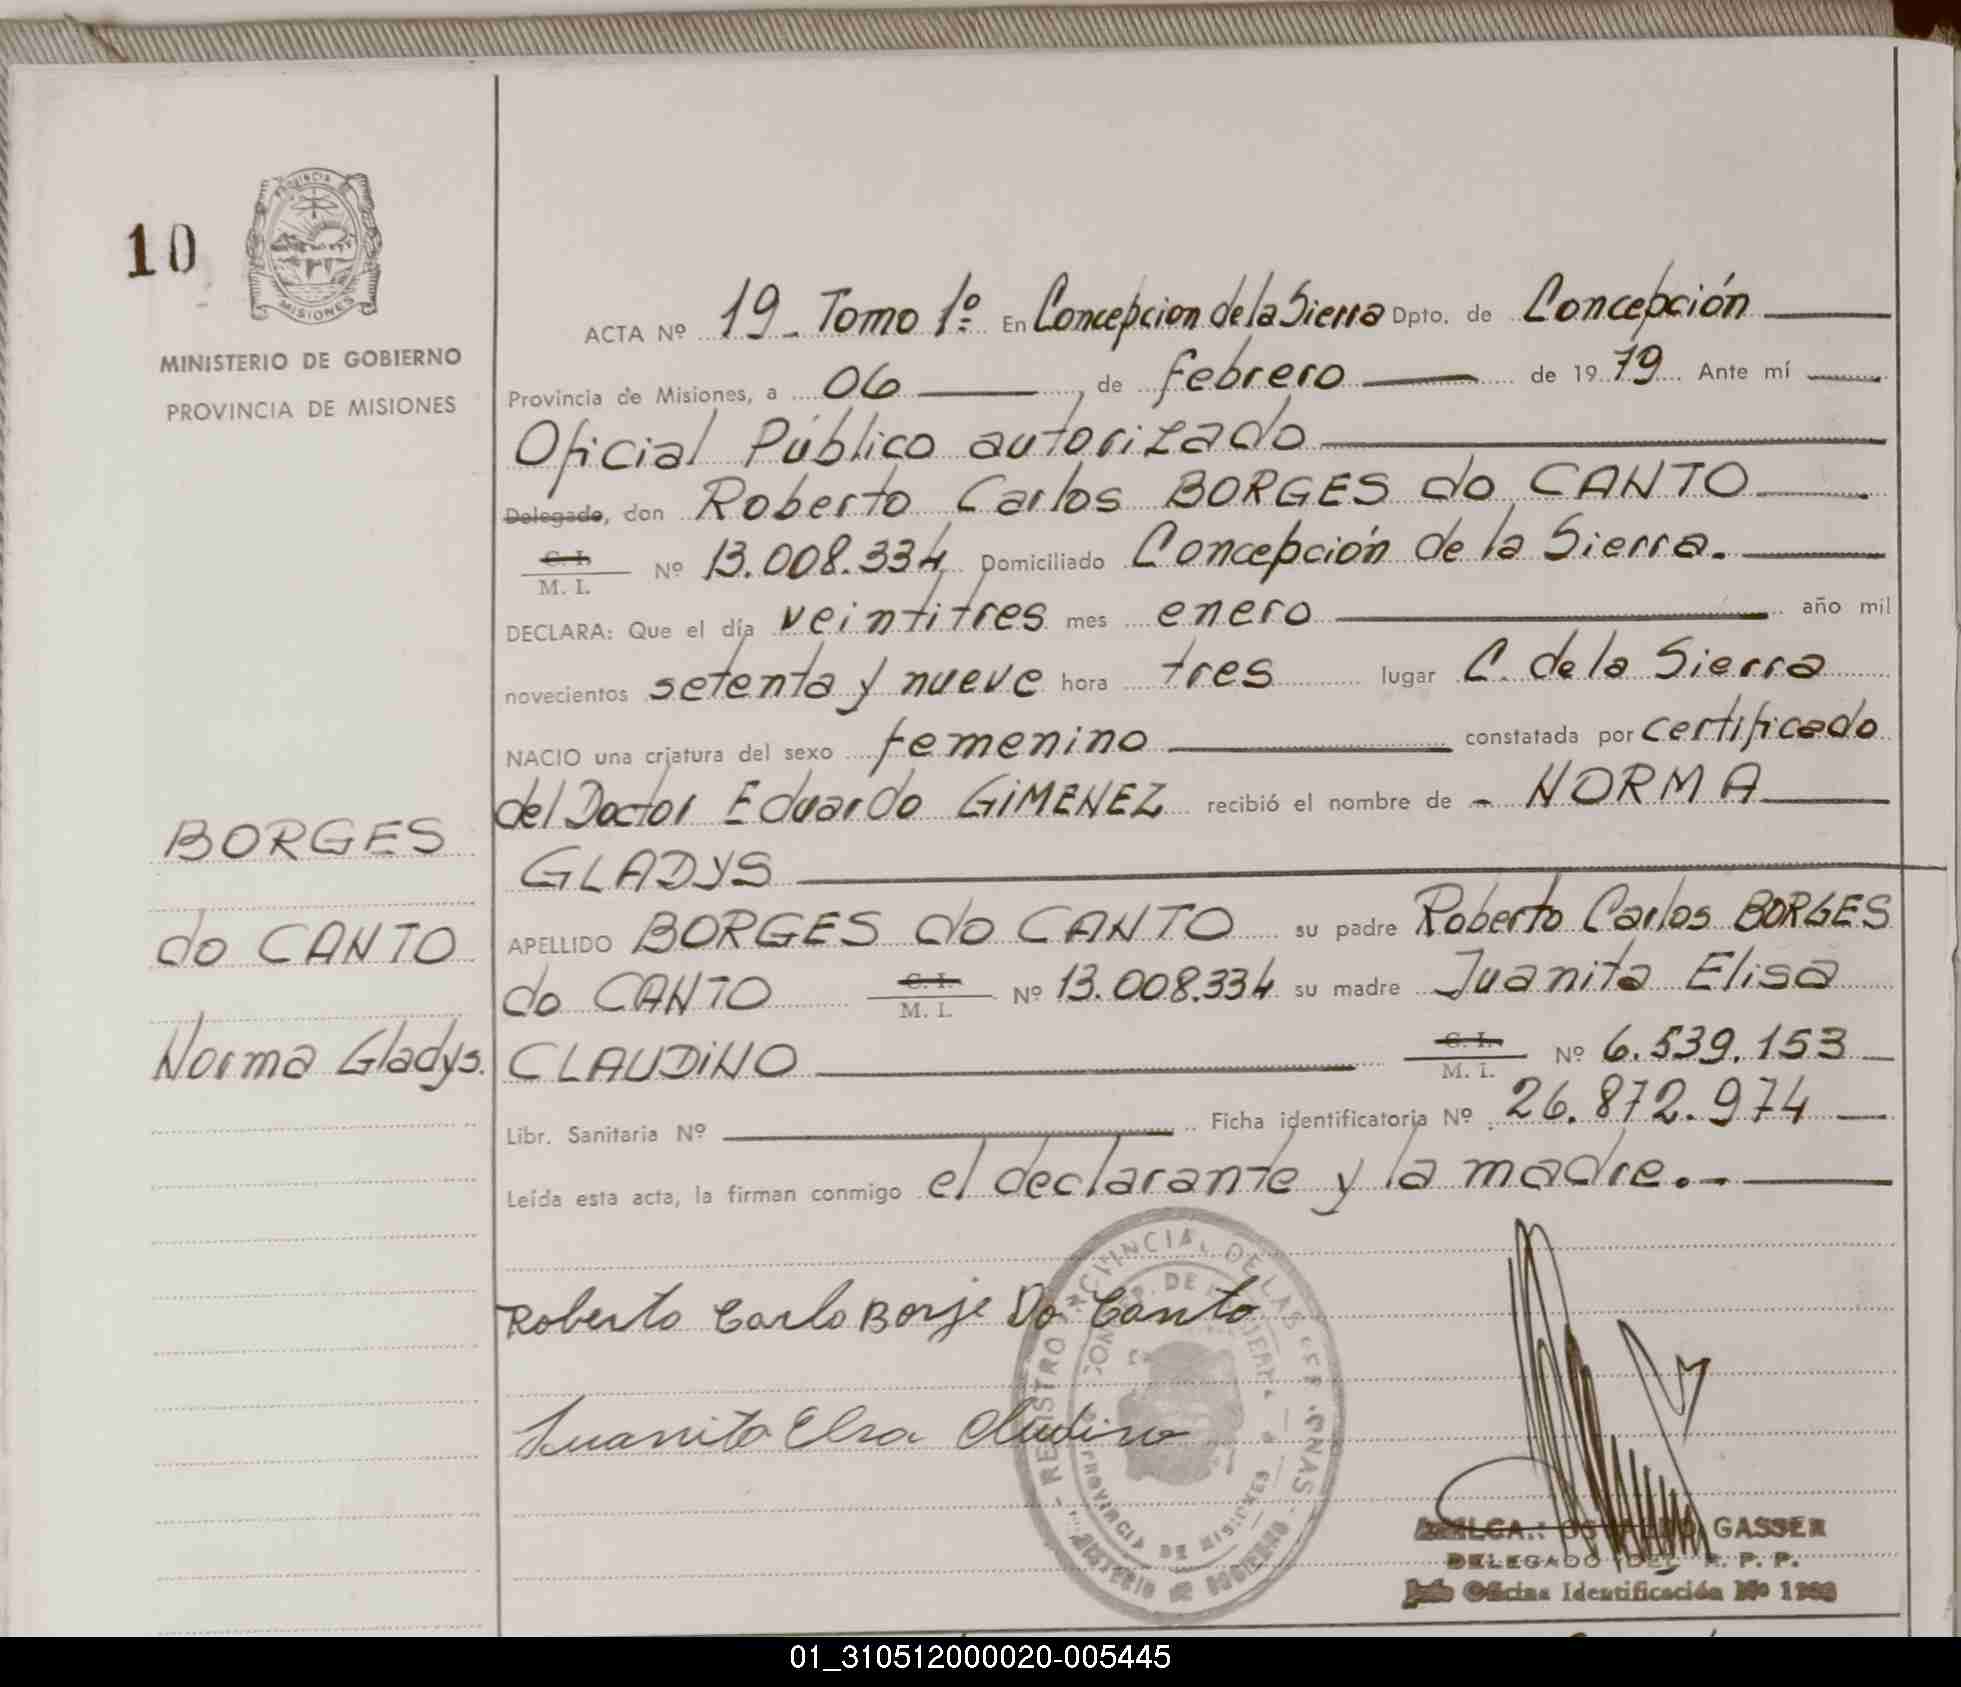 10
PROVINCIA DE
MISIONES
MINISTERIO DE GOBIERNO
PROVINCIA DE MISIONES
ACTA Nº 19 - Tomo 1º En Concepcion de la Sierra Dpto. de Concepción
Provincia de Misiones, a 06, de febrero de 1979 Ante mí
Oficial Público autorizado
Delegado, don Roberto Carlos BORGES do CANTO
C. I.
M. I. Nº 13.008.334 Domiciliado Concepción de la Sierra.
DECLARA: Que el día veintitres mes enero año mil
novecientos setenta y nueve hora tres lugar C. de la Sierra
NACIO una criatura del sexo femenino constatada por certificado
del Doctor Eduardo GiMENEZ recibió el nombre de - NORMA
GLADYS
APELLIDO BORGES do CANTO su padre Roberto Carlos BORGES
do CANTO C. I. M. I. Nº 13.008.334 su madre Juanita Elisa
CLAUDiNO C. I. M. I. Nº 6.539.153
Libr. Sanitaria Nº Ficha identificatoria Nº 26.872.974
Leída esta acta, la firman conmigo el declarante y la madre.-
BORGES
do CANTO
Norma Gladys.
Roberto Carlo Borje Do Canto
Juanita Elsa Cludino
REGISTRO PROVINCIAL DE LAS PERSONAS
PROVINCIA DE MISIONES
MINISTERIO DE GOBIERNO
GASSER
DELEGADO DEL R. P. P.
Oficina Identificación Nº
01_310512000020-005445